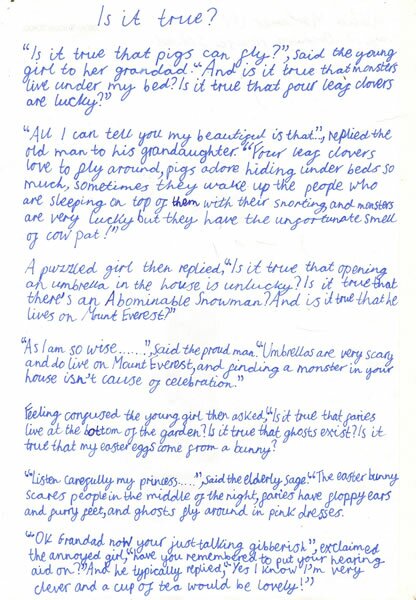 Is it true?
"Is it true that pigs can fly?", said the young
girl to her grandad. "And is it true that monsters
live under my bed? Is it true that four leaf clovers
are lucky?"
"All I can tell you my beautiful is that...", replied the
old man to his grandaughter. "Four leaf clovers
love to fly around, pigs adore hiding under beds so
much, sometimes they wake up the people who
are sleeping on top of them with their snorting, and monsters
are very lucky but they have the unfortunate smell
of cow pat!"
A puzzled girl then replied, "Is it true that opening
an umbrella in the house is unlucky? Is it true that
there's an Abominable Snowman? And is it true that he
lives on Mount Everest?"
"As I am so wise......", said the proud man. "Umbrellas are very scary
and do live on Mount Everest, and finding a monster in your
house isn't cause of celebration."
Feeling confused the young girl then asked, "Is it true that faries
live at the bottom of the garden? Is it true that ghosts exist? Is it
true that my easter eggs come from a bunny?
"Listen carefully my princess.....", said the elderly sage. "The easter bunny
scares people in the middle of the night, faries have floppy ears
and furry feet, and ghosts fly around in pink dresses.
"OK Grandad now your just talking gibberish", exclaimed
the annoyed girl, "have you remembered to put your hearing
aid on?" And he typically replied, "Yes I know I'm very
clever and a cup of tea would be lovely!"